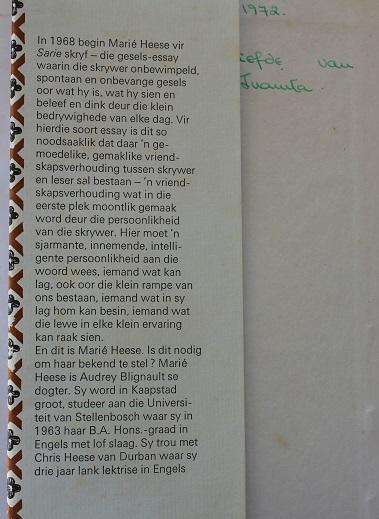 In 1968 begin Marié Heese vir
Sarie skryf – die gesels-essay
waarin die skrywer onbewimpeld,
spontaan en onbevange gesels
oor wat hy is, wat hy sien en
beleef en dink deur die klein
bedrywighede van elke dag. Vir
hierdie soort essay is dit so
noodsaaklik dat daar 'n ge-
moedelike, gemaklike vriend-
skapsverhouding tussen skrywer
en leser sal bestaan – 'n vriend-
skapsverhouding wat in die
eerste plek moontlik gemaak
word deur die persoonlikheid
van die skrywer. Hier moet 'n
sjarmante, innemende, intelli-
gente persoonlikheid aan die
woord wees, iemand wat kan
lag, ook oor die klein rampe van
ons bestaan, iemand wat in sy
lag hom kan besin, iemand wat
die lewe in elke klein ervaring
kan raak sien.
En dit is Marié Heese. Is dit nodig
om haar bekend te stel? Marié
Heese is Audrey Blignault se
dogter. Sy word in Kaapstad
groot, studeer aan die Universi-
teit van Stellenbosch waar sy in
1963 haar B.A. Hons.-graad in
Engels met lof slaag. Sy trou met
Chris Heese van Durban waar sy
drie jaar lank lektrise in Engels
1972.
iefde van
Juanita